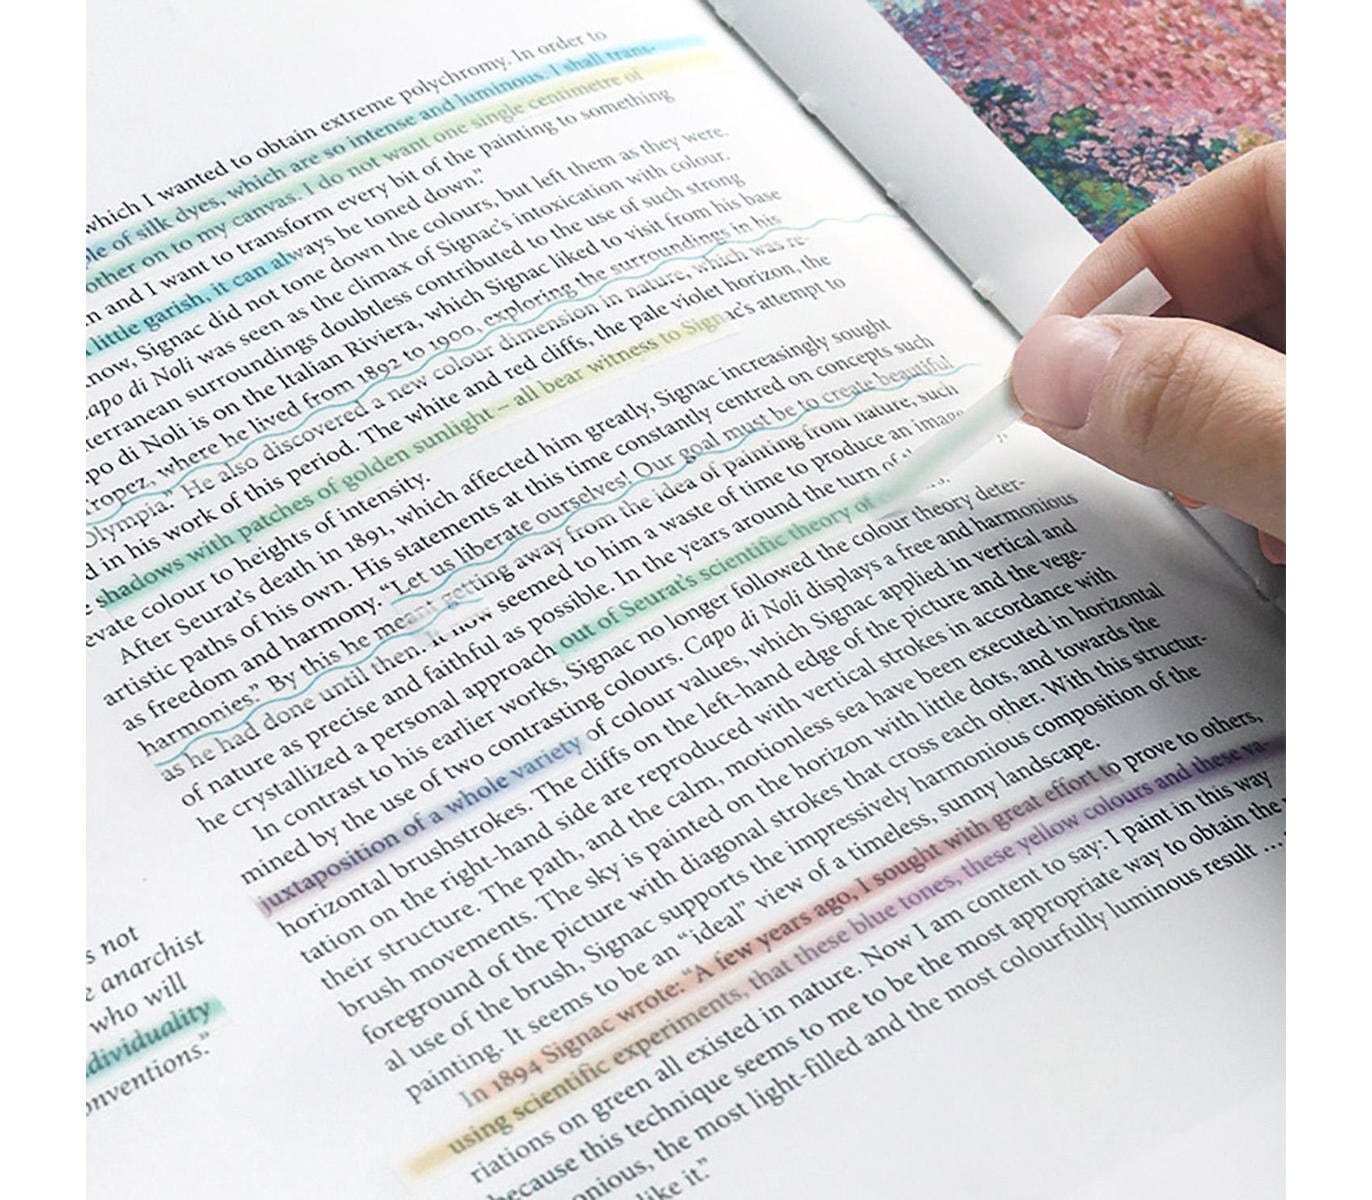 which I wanted to obtain extreme polychromy. In order to
le of silk dyes, which are so intense and luminous. I shall trans-
other on to my canvas. I do not want one single centimetre of
n and I want to transform every bit of the painting to something
little garish, it can always be toned down.”
now, Signac did not tone down the colours, but left them as they were.
apo di Noli was seen as the climax of Signac’s intoxication with colour.
terranean surroundings doubtless contributed to the use of such strong
po di Noli is on the Italian Riviera, which Signac liked to visit from his base
ropez, where he lived from 1892 to 1900, exploring the surroundings in his
Olympia.” He also discovered a new colour dimension in nature, which was re-
d in his work of this period. The white and red cliffs, the pale violet horizon, the
e shadows with patches of golden sunlight – all bear witness to Signac’s attempt to
evate colour to heights of intensity.
After Seurat’s death in 1891, which affected him greatly, Signac increasingly sought
artistic paths of his own. His statements at this time constantly centred on concepts such
as freedom and harmony. “Let us liberate ourselves! Our goal must be to create beautiful
harmonies.” By this he meant getting away from the idea of painting from nature, such
as he had done until then. It now seemed to him a waste of time to produce an image
of nature as precise and faithful as possible. In the years around the turn of
he crystallized a personal approach out of Seurat’s scientific theory of
In contrast to his earlier works, Signac no longer followed the colour theory deter-
mined by the use of two contrasting colours. Capo di Noli displays a free and harmonious
juxtaposition of a whole variety of colour values, which Signac applied in vertical and
horizontal brushstrokes. The cliffs on the left-hand edge of the picture and the vege-
tation on the right-hand side are reproduced with vertical strokes in accordance with
their structure. The path, and the calm, motionless sea have been executed in horizontal
brush movements. The sky is painted on the horizon with little dots, and towards the
foreground of the picture with diagonal strokes that cross each other. With this structur-
al use of the brush, Signac supports the impressively harmonious composition of the
painting. It seems to be an “ideal” view of a timeless, sunny landscape.
In 1894 Signac wrote: “A few years ago, I sought with great effort to prove to others,
using scientific experiments, that these blue tones, these yellow colours and these va-
riations on green all existed in nature. Now I am content to say: I paint in this way
because this technique seems to me to be the most appropriate way to obtain the
onious, the most light-filled and the most colourfully luminous result …
like it.”
s not
e anarchist
who will
dividuality
onventions.”